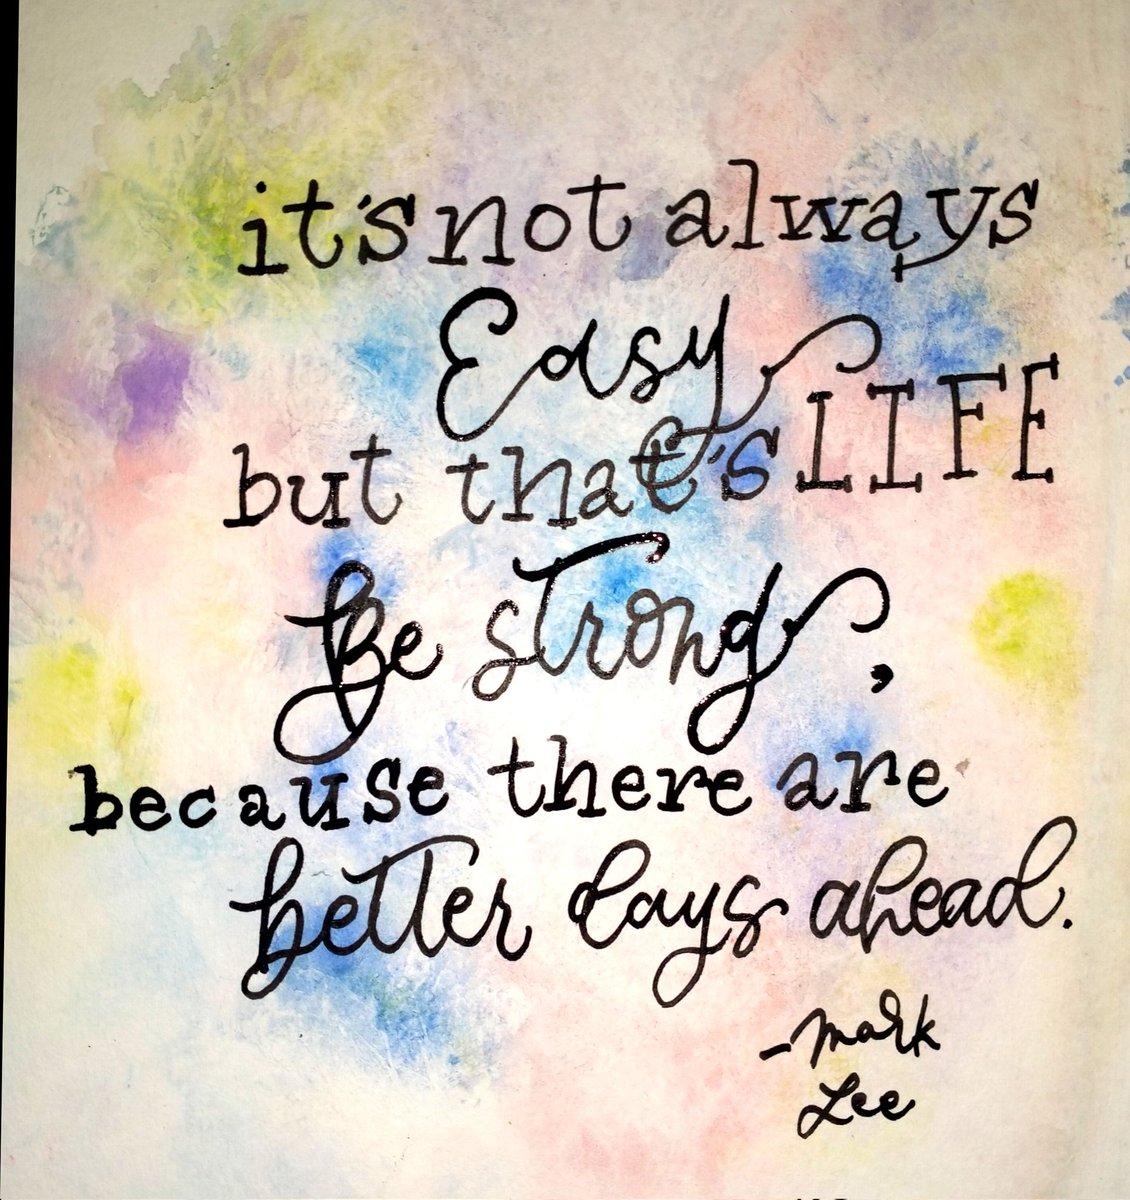 it's not always
Easy
but that's LIFE
Be strong,
because there are
better days ahead.
- Mark
Lee